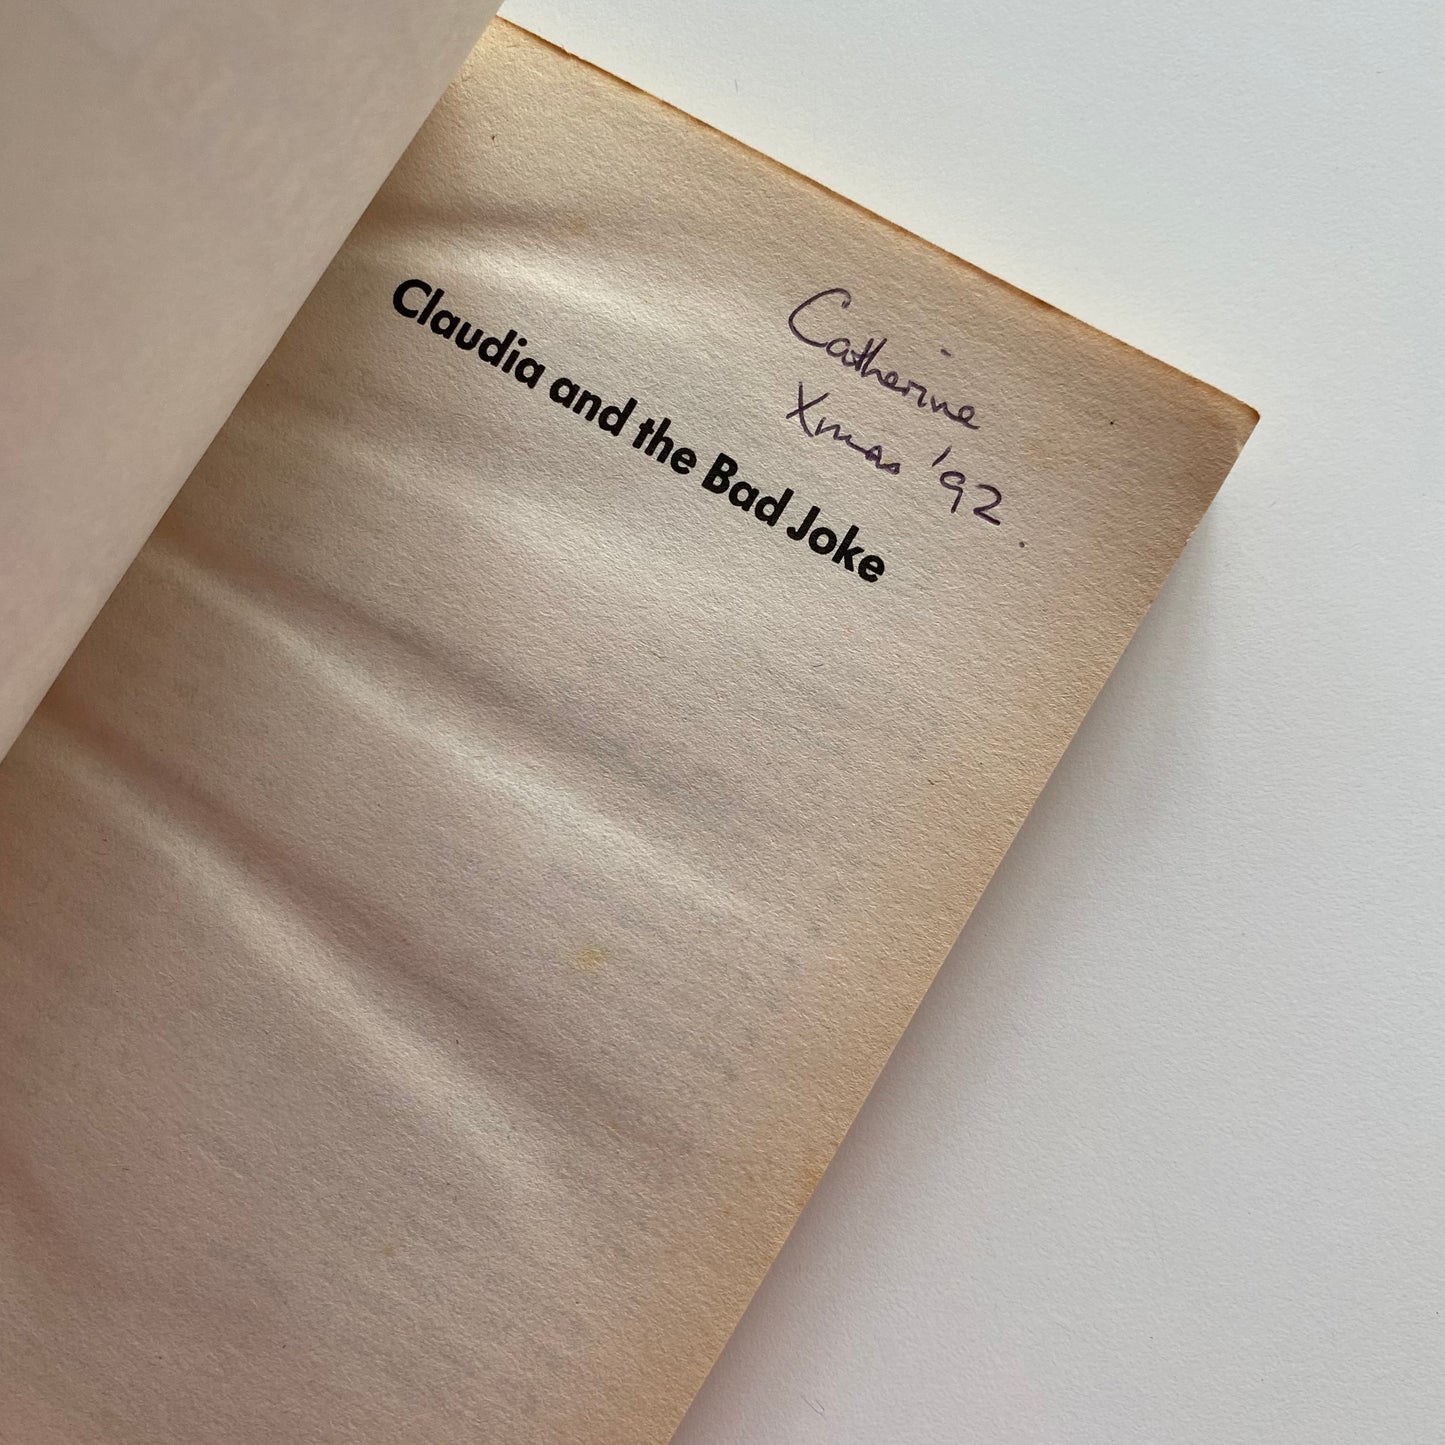 Claudia and the Bad Joke
Catherine
Xmas '92